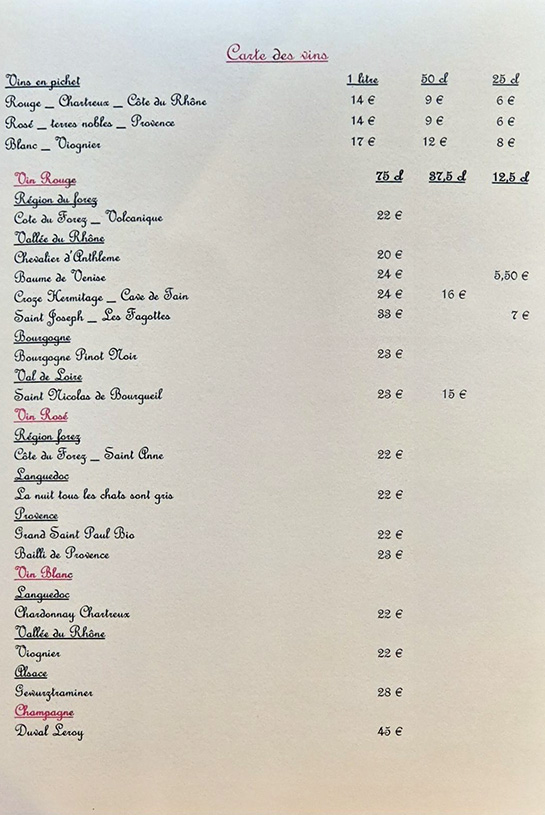 Carte des vins
Vins en pichet 1 litre 50 cl 25 cl
Rouge _ Chartreux _ Côte du Rhône 14 € 9 € 6 €
Rosé _ terres nobles _ Provence 14 € 9 € 6 €
Blanc _ Viognier 17 € 12 € 8 €
Vin Rouge 75 cl 37,5 cl 12,5 cl
Région du forez
Cote du Forez _ Volcanique 22 €
Vallée du Rhône
Chevalier d'Anthleme 20 €
Baume de Venise 24 € 5,50 €
Croze Hermitage _ Cave de Tain 24 € 16 €
Saint Joseph _ Les Fagottes 33 € 7 €
Bourgogne
Bourgogne Pinot Noir 23 €
Val de Loire
Saint Nicolas de Bourgueil 23 € 15 €
Vin Rosé
Région forez
Côte du Forez _ Saint Anne 22 €
Languedoc
La nuit tous les chats sont gris 22 €
Provence
Grand Saint Paul Bio 22 €
Bailli de Provence 23 €
Vin Blanc
Languedoc
Chardonnay Chartreux 22 €
Vallée du Rhône
Viognier 22 €
Alsace
Gewurztraminer 28 €
Champagne
Duval Leroy 45 €